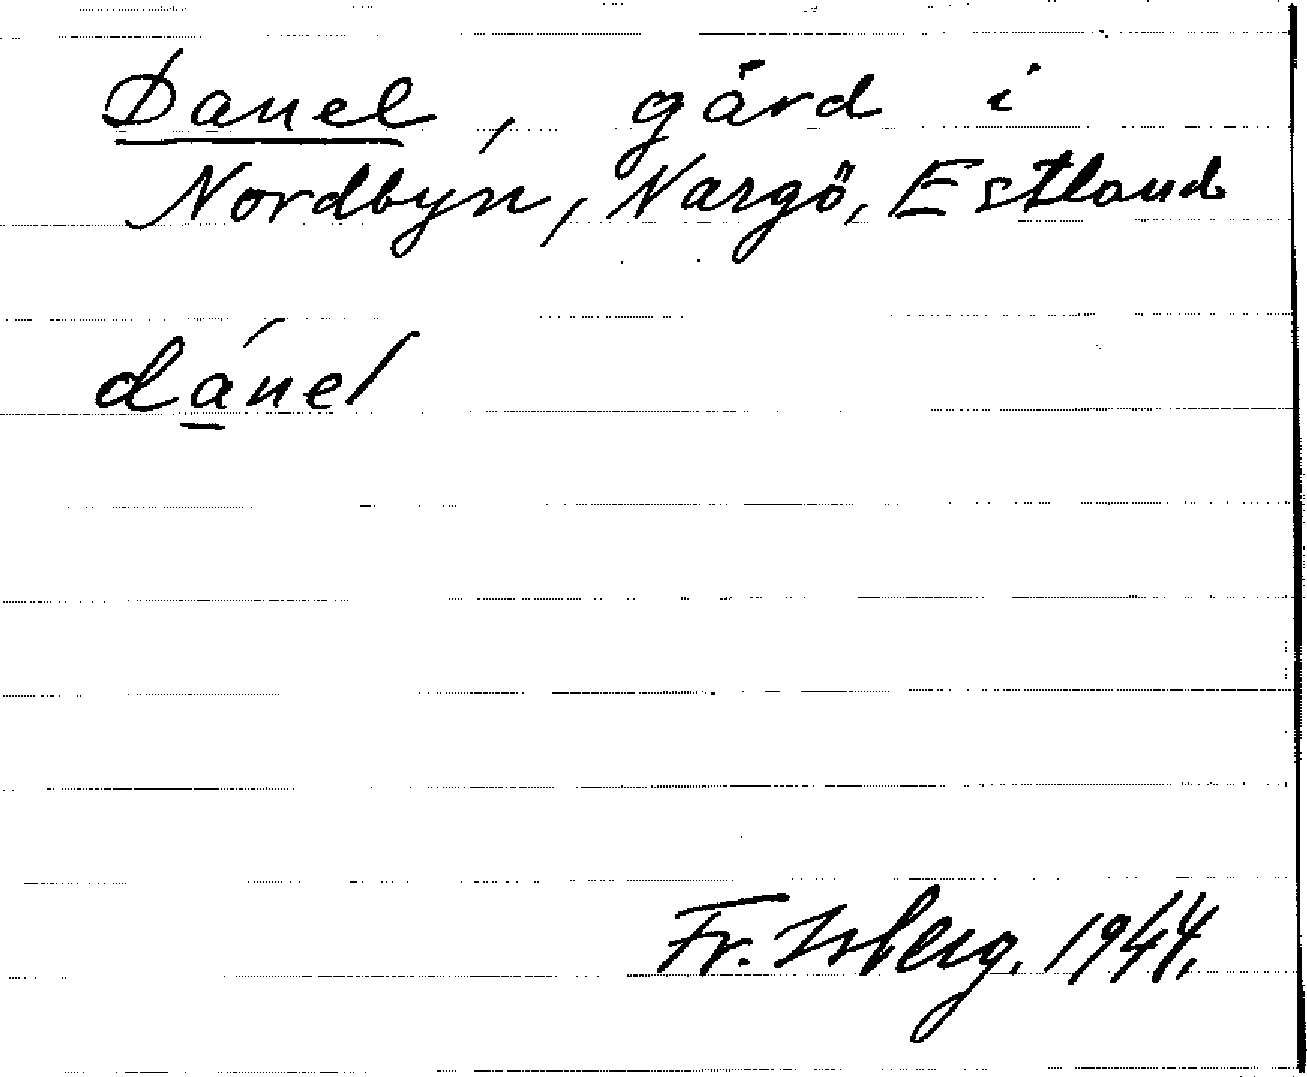 Danel, gård i
Nordbyn, Nargö, Estland
dánel
Fr. Isberg. 1944.